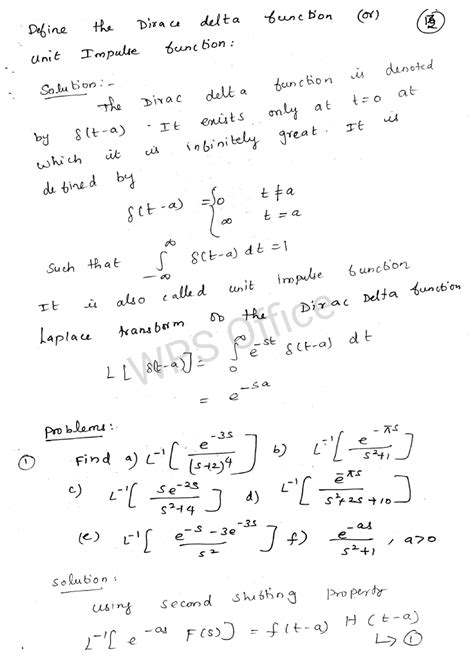 Define the Diracs delta function (or)
unit Impulse function:
Solution:-
The Dirac delta function is denoted
by δ(t-a). It exists only at t=0 at
which it is infinitely great. It is
defined by
δ(t-a) = { 0 t≠a
∞ t=a
Such that ∫_{-∞}^{∞} δ(t-a) dt = 1
It is also called unit impulse function
Laplace transform of the Dirac Delta function
L[δ(t-a)] = ∫_0^∞ e^{-st} δ(t-a) dt
= e^{-sa}
Problems:
① Find a) L^{-1}[e^{-3s}/(s+2)^4] b) L^{-1}[e^{-πs}/s^2+1]
c) L^{-1}[se^{-2s}/s^2+4] d) L^{-1}[e^{-πs}/s^2+2s+10]
(e) L^{-1}[e^{-s}-3e^{-3s}/s^2] f) e^{-as}/s^2+1, a>0
Solution:
using second shifting property
L^{-1}[e^{-as} F(s)] = f(t-a) H(t-a)
↳①
WPS Office